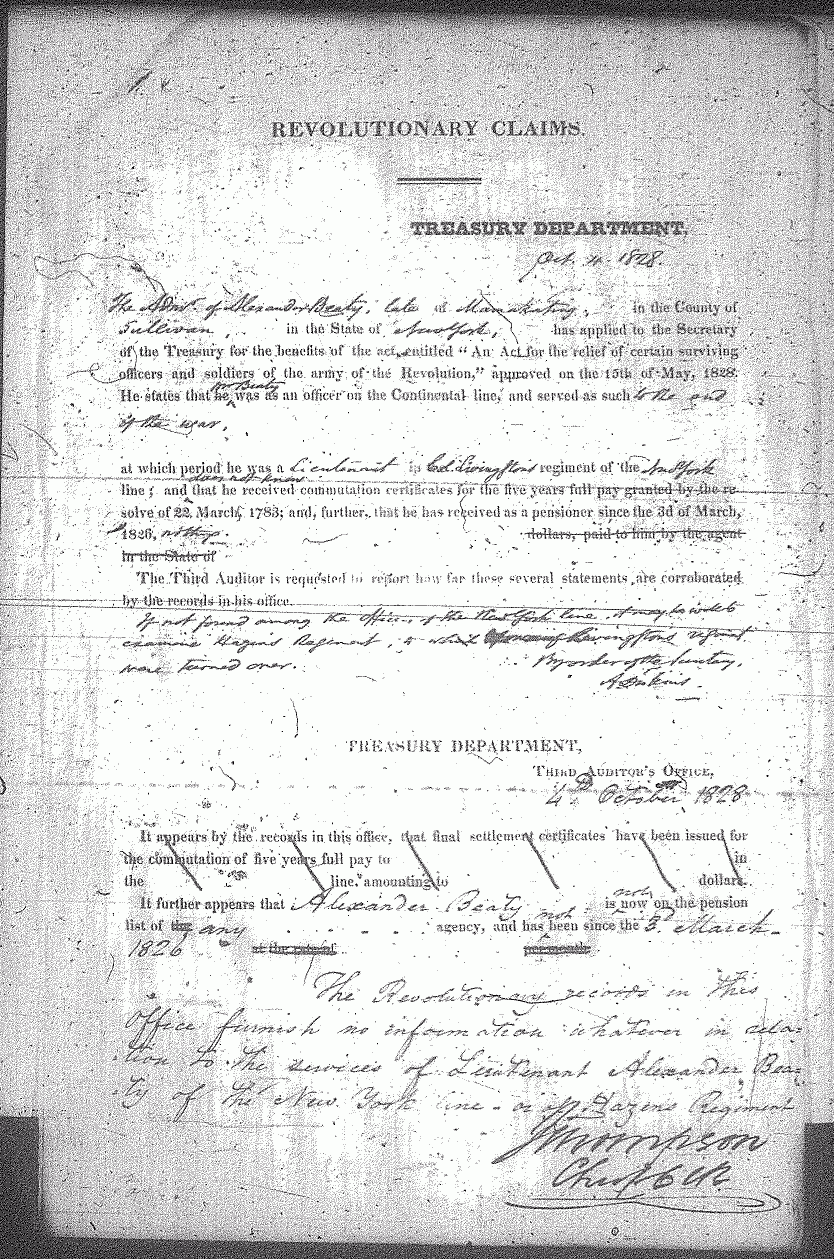 REVOLUTIONARY CLAIMS.
TREASURY DEPARTMENT,
Oct. 4. 1828.
The Admr. of Alexander Beaty, late of Mamakating, in the County of
Sullivan, in the State of New York, has applied to the Secretary
of the Treasury for the benefits of the act, entitled “An Act for the relief of certain surviving
officers and soldiers of the army of the Revolution,” approved on the 15th of May, 1828.
Mr Beaty
He states that he was as an officer on the Continental line, and served as such to the end
of the war,
at which period he was a Lieutenant in Col. Livingstons regiment of the New York
does not know
line; and that he received commutation certificates for the five years full pay granted by the re-
solve of 22 March, 1783; and, further, that he has received as a pensioner since the 3d of March,
1826, nothing. dollars, paid to him by the agent
in the State of
The Third Auditor is requested to report how far these several statements are corroborated
by the records in his office.
If not found among the officers of the New York line, it may be well to
examine Hazens Regiment, to which Livingstons regiment
were turned over. By order of the Secretary,
A Dickins
TREASURY DEPARTMENT,
THIRD AUDITOR'S OFFICE,
4th October 1828
It appears by the records in this office, that final settlement certificates have been issued for
the commutation of five years full pay to in
the line, amounting to dollars.
not
It further appears that Alexander Beaty is now on the pension
not
list of the any agency, and has been since the 3d March
1826 at the rate of per month
The Revolutionary records in this
Office furnish no information whatever in rela-
tion to the services of Lieutenant Alexander Bea-
ty of the New York line - or of Hazens Regiment
J Thompson
Chief Clk.